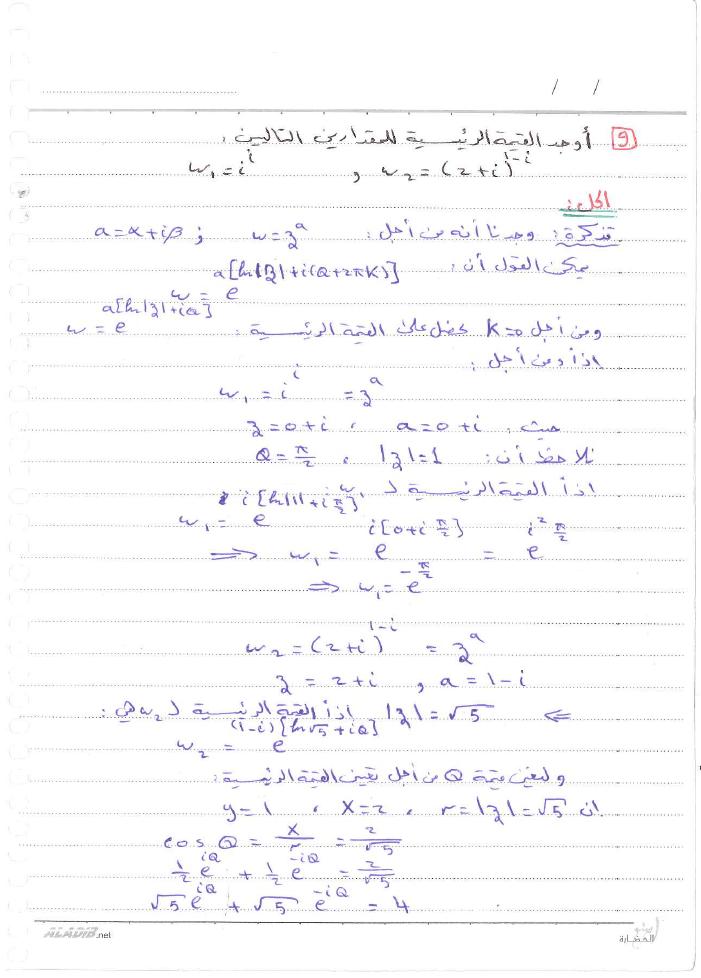 / /
[9] أوجد القيمة الرئيسية للمقدارين التاليين:
w₁ = i^i , w₂ = (2+i)^(1-i)
الحل:
تذكرة: وجدنا أنه من أجل: w = z^a ; a = α+iβ
يمكن القول أن:
w = e^(a[ln|z|+i(θ+2πK)])
ومن أجل K=0 نحصل على القيمة الرئيسية: w = e^(a[ln|z|+iθ])
اذاً ومن أجل:
w₁ = i^i = z^a
حيث: a = 0+i , z = 0+i
نلاحظ أن: |z| = 1 , θ = π/2
اذاً القيمة الرئيسية لـ w₁
w₁ = e^(i[ln|1|+iπ/2])
⟹ w₁ = e^(i[0+iπ/2]) = e^(i²π/2)
⟹ w₁ = e^(-π/2)
w₂ = (2+i)^(1-i) = z^a
z = 2+i , a = 1-i
⟸ |z| = √5 اذاً القيمة الرئيسية لـ w₂ هي:
w₂ = e^((1-i)[ln√5+iθ])
ولنعين قيمة θ من أجل تعيين القيمة الرئيسية:
ان r = |z| = √5 , x = 2 , y = 1
cos θ = x/r = 2/√5
½e^(iθ) + ½e^(-iθ) = 2/√5
√5 e^(iθ) + √5 e^(-iθ) = 4
ALADIB.net
الحضارة